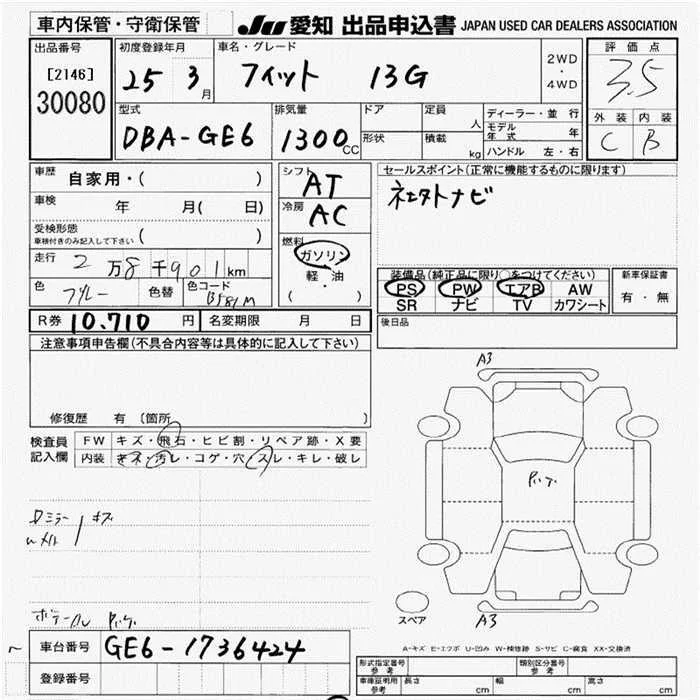 車内保管・守衛保管
JU 愛知 出品申込書 JAPAN USED CAR DEALERS ASSOCIATION
出品番号
[2146]
30080
初度登録年月
25 3月
車名・グレード
フィット 13G
2WD
・
4WD
評価点
3.5
外装 内装
C B
型式
DBA-GE6
排気量
1300cc
ドア
形状
定員
人
積載
kg
ディーラー・並行
モデル年式 年
ハンドル 左・右
車歴 自家用・( )
車検 年 月( 日)
受検形態
車検付きのみ記入して下さい ( )
走行 2万8千901km
色
色替
色コード
シフト
AT
冷房
AC
燃料
ガソリン
軽・油
( )
セールスポイント(正常に機能するものに限ります)
ナビ
装備品(純正品に限り○をつけてください)
PS PW エアB AW
SR ナビ TV カワシート
新車保証書
有・無
後日品
R券 10.710円 名変期限 月 日
注意事項申告欄(不具合内容等は具体的に記入して下さい)
修復歴 有(箇所 )
検査員記入欄
FW キズ・飛石・ヒビ割・リペア跡・X要
内装 キズ・汚レ・コゲ・穴・スレ・キレ・破レ
A3
ミラー キズ
スペア
A3
A-キズ E-エクボ U-凹み W-補修跡 S-サビ C-腐食 XX-交換済
車台番号 GE6-1736424
登録番号
形式指定番号
参考
類別区分番号
参考
車庫証明用
参考
長さ cm 幅 cm 高さ cm